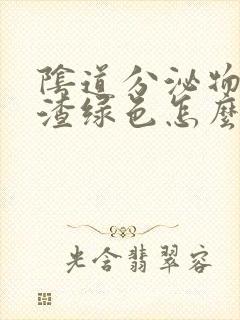 陰道分泌物
渣绿色怎麼
光含翡翠容